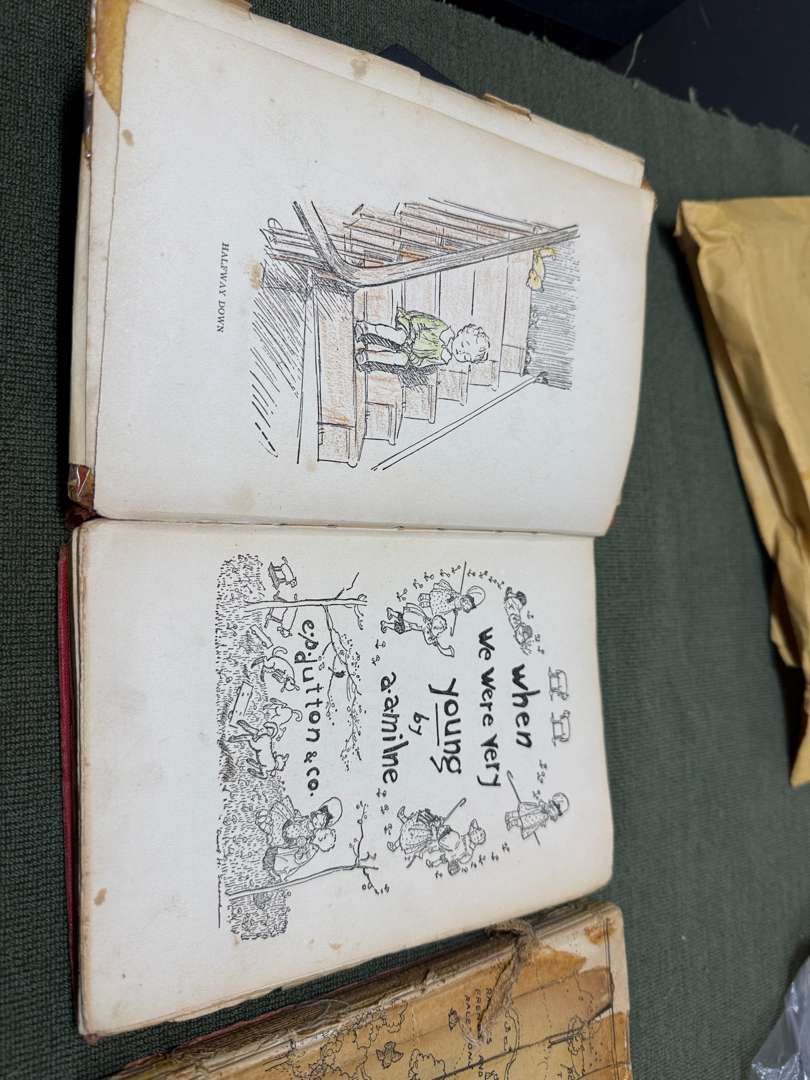 HALFWAY DOWN
when
we were very
young
by
a.a.milne
e.p.dutton & co.